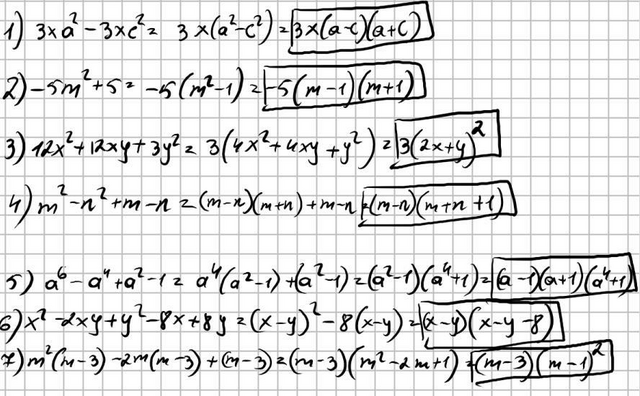 1) 3xa² - 3xc² = 3x(a²-c²) = 3x(a-c)(a+c)
2) -5m²+5 = -5(m²-1) = -5(m-1)(m+1)
3) 12x²+12xy+3y² = 3(4x²+4xy+y²) = 3(2x+y)²
4) m²-n²+m-n = (m-n)(m+n)+m-n = (m-n)(m+n+1)
5) a⁶-a⁴+a²-1 = a⁴(a²-1)+(a²-1) = (a²-1)(a⁴+1) = (a-1)(a+1)(a⁴+1)
6) x²-2xy+y²-8x+8y = (x-y)²-8(x-y) = (x-y)(x-y-8)
7) m²(m-3)-2m(m-3)+(m-3) = (m-3)(m²-2m+1) = (m-3)(m-1)²